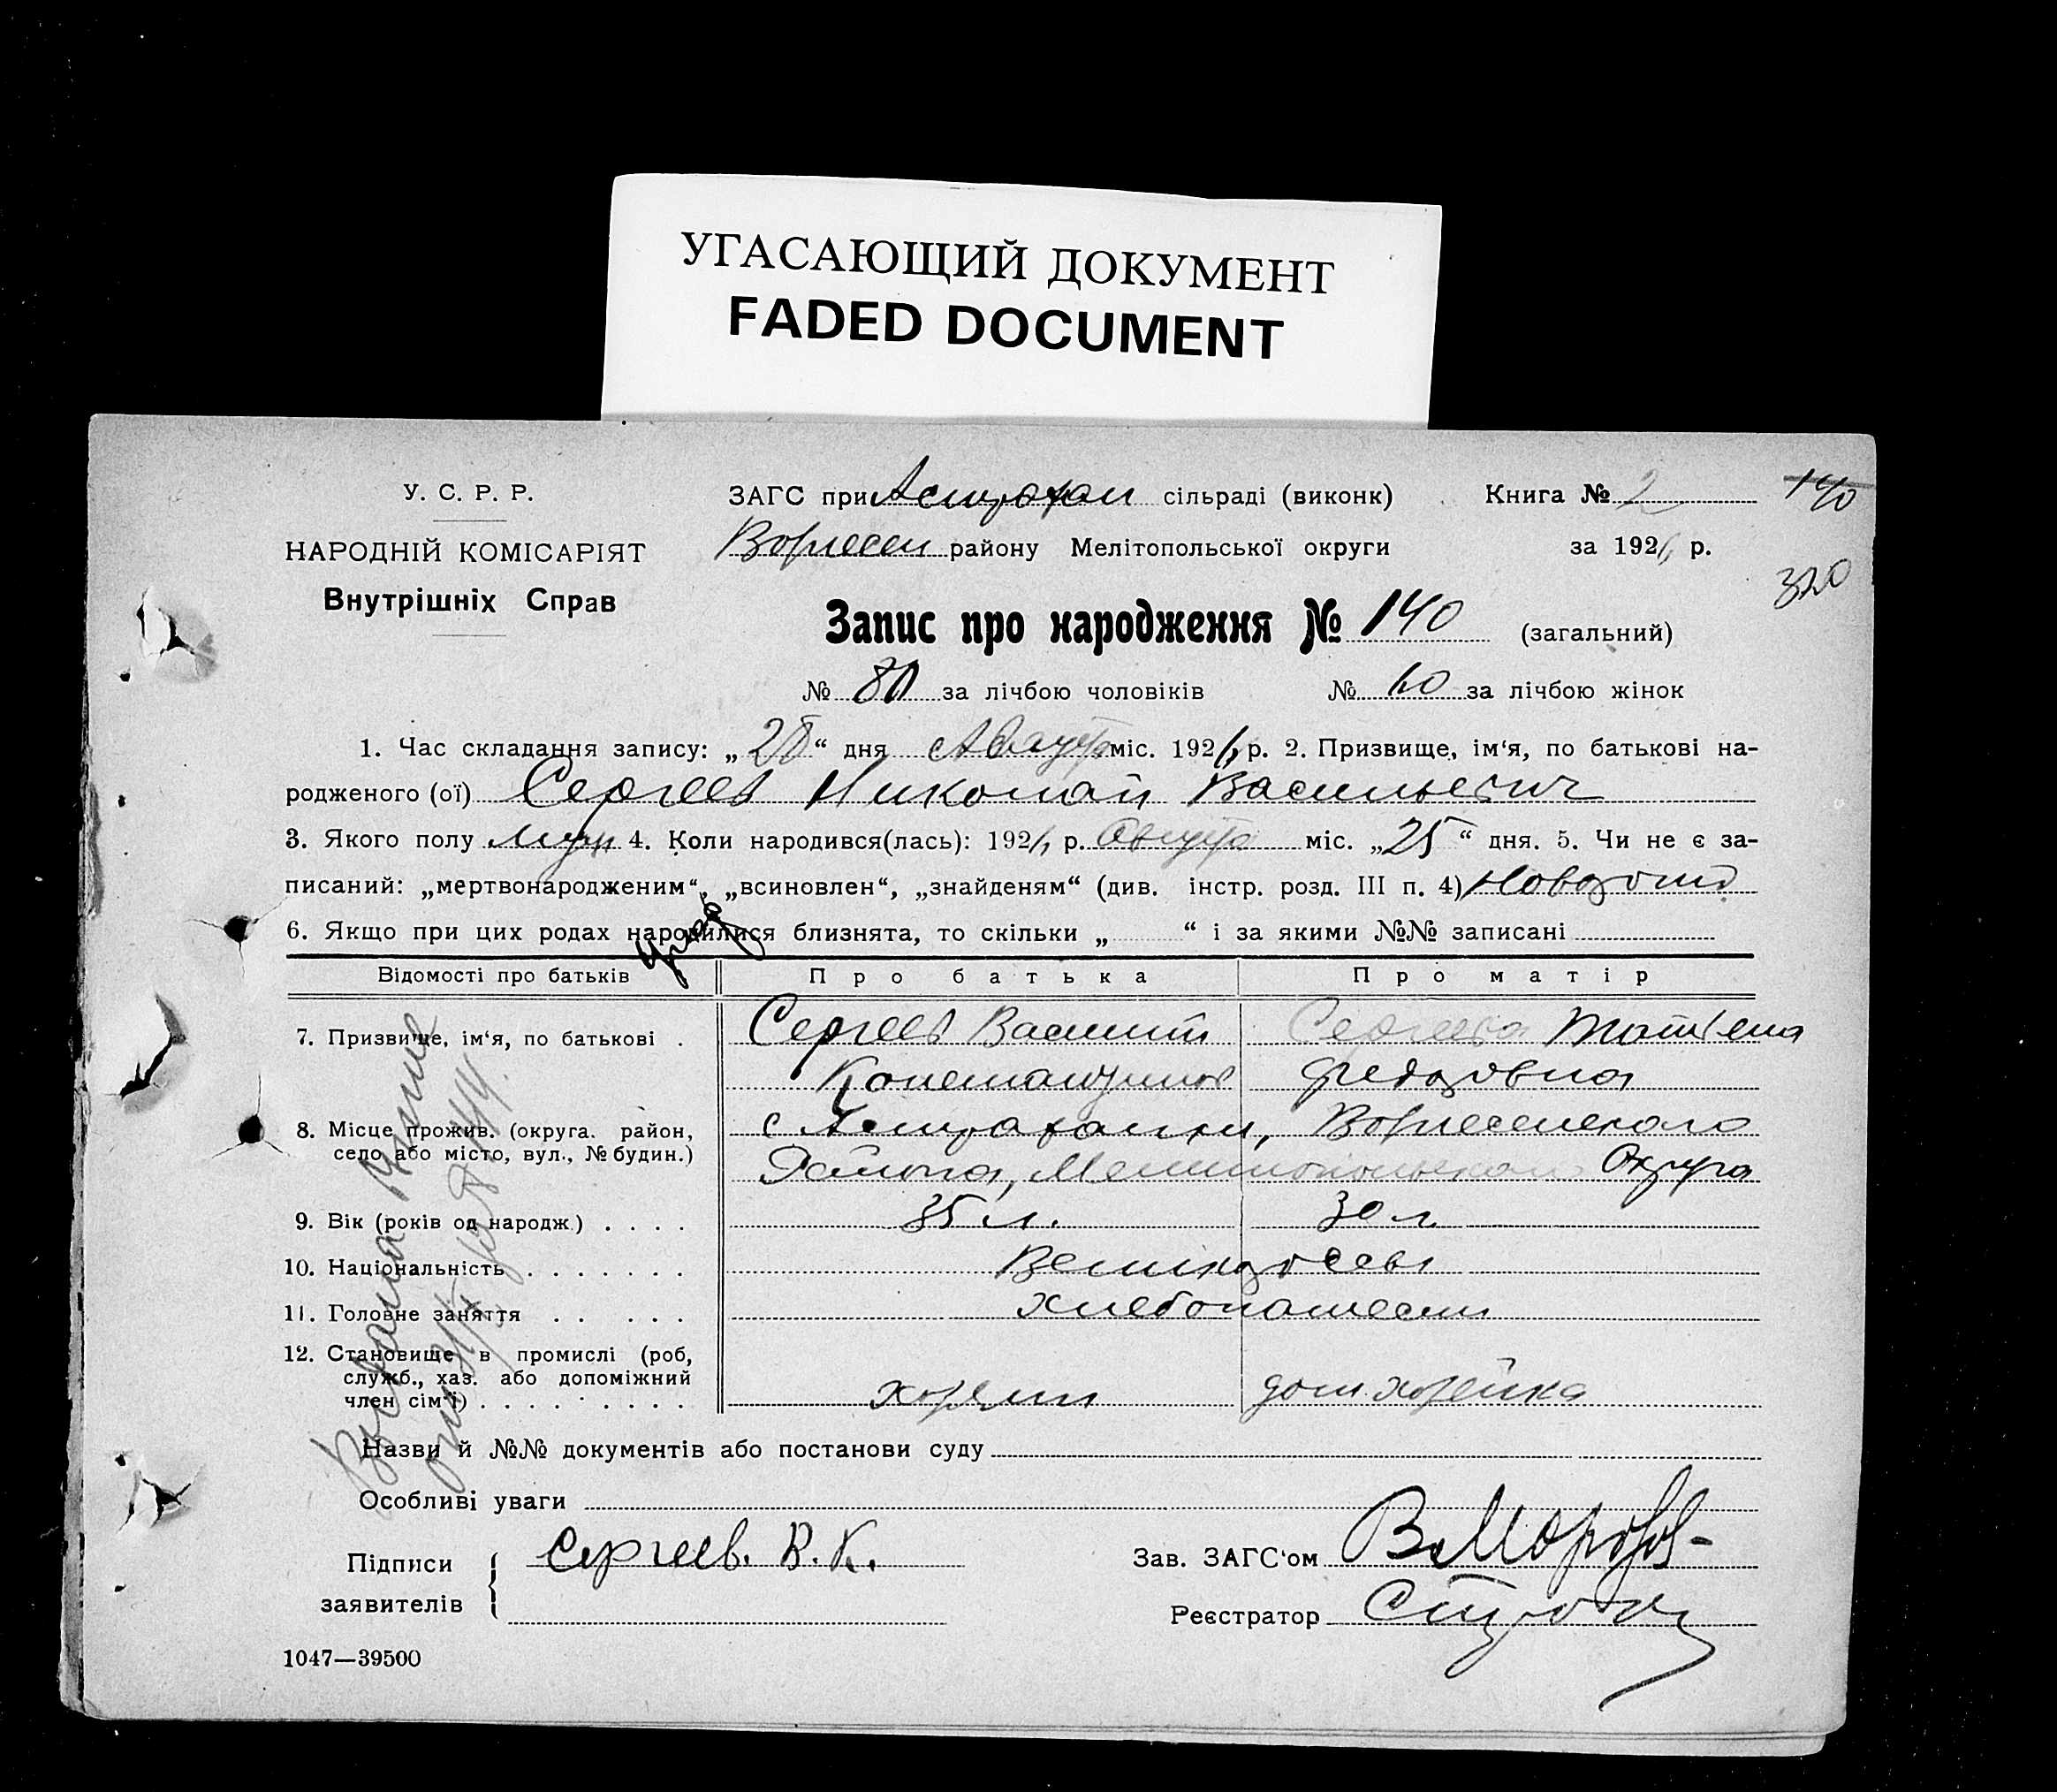 УГАСАЮЩИЙ ДОКУМЕНТ
FADED DOCUMENT
У. С. Р. Р.
НАРОДНІЙ КОМІСАРІЯТ
Внутрішніх Справ
ЗАГС при Астрахан сільраді (виконк)
Вознесен району Мелітопольської округи
Книга № 2
за 1926 р.
140
320
Запис про народження № 140 (загальний)
№ 80 за лічбою чоловіків № 60 за лічбою жінок
1. Час складання запису: „28“ дня Августа міс. 1926 р. 2. Призвище, ім‘я, по батькові на-
родженого (ої) Сергеев Николай Васильевич
3. Якого полу муж 4. Коли народився(лась): 1926 р. Августа міс. „25“ дня. 5. Чи не є за-
писаний: „мертвонародженим“, „всиновлен“, „знайденям“ (див. інстр. розд. III п. 4)
6. Якщо при цих родах народилися близнята, то скільки „ “ і за якими №№ записані
Відомості про батьків Про батька Про матір
7. Призвище, ім‘я, по батькові . Сергеев Василий Сергеева Татьяна
Константинов Федоровна
8. Місце прожив. (округа. район, с Астраханки, Вознесенского
село або місто, вул., № будин.) Района, Мелитопольского Округа
9. Вік (років од народж.) . . . . 35 л. 30 л
10. Національність . . . . . . . Великороссы
11. Головне заняття . . . . . Хлебопашест
12. Становище в промислі (роб,
служб., хаз. або допоміжний
член сім‘ї) . . . . . . . . . хозяин дом. хозяйка
Назви й №№ документів або постанови суду
Особливі уваги
Підписи
заявителів
Сергеев. В. К.
Зав. ЗАГС‘ом В. Морозов
Реєстратор
1047—39500